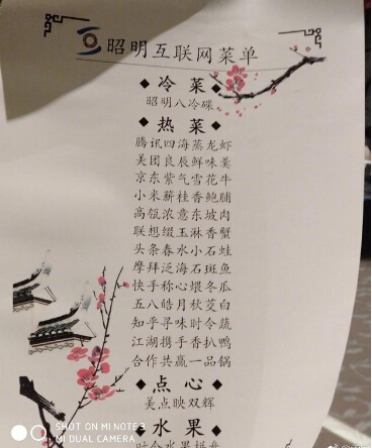 昭明互联网菜单
◆ 冷菜 ◆
昭明八冷碟
◆ 热菜 ◆
腾讯四海蒸龙虾
美团良辰鲜味羹
京东紫气雪花牛
小米薪桂香鲍脯
高瓴浓意东坡肉
联想缀玉淋香蟹
头条春水小石蛙
摩拜泛海石斑鱼
快手称心煨冬瓜
五八皓月秋茭白
知乎寻味时令蔬
江湖携手香扒鸭
合作共赢一品锅
◆ 点心 ◆
美点映双辉
◆ 水果 ◆
时令水果拼盘
SHOT ON MI NOTE 3
MI DUAL CAMERA